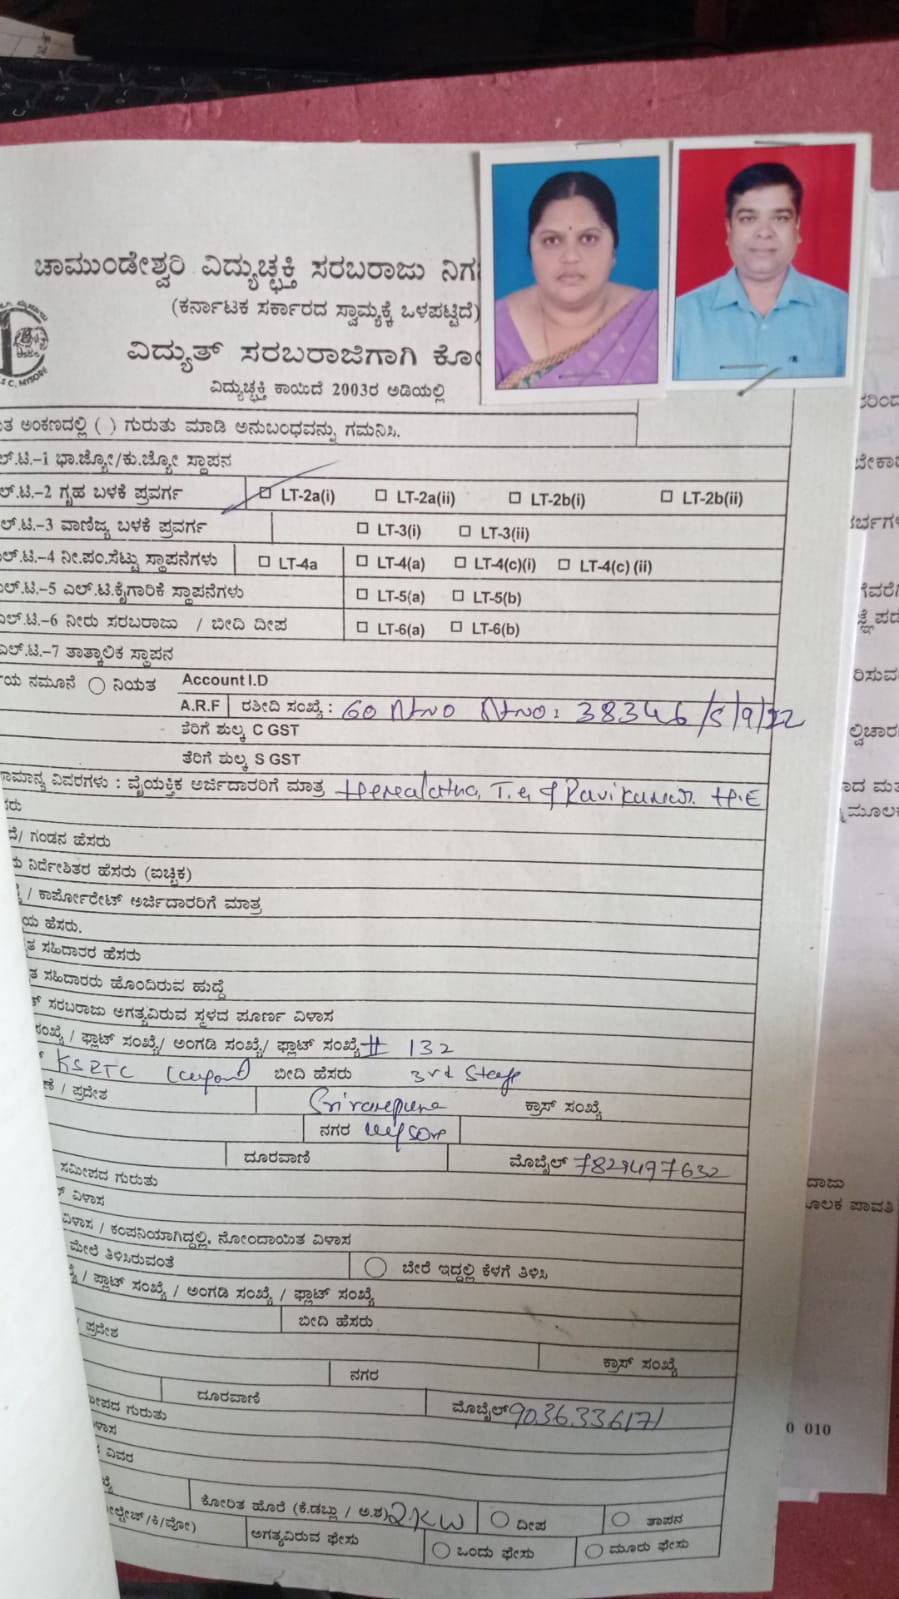 ಚಾಮುಂಡೇಶ್ವರಿ ವಿದ್ಯುಚ್ಛಕ್ತಿ ಸರಬರಾಜು ನಿಗ
(ಕರ್ನಾಟಕ ಸರ್ಕಾರದ ಸ್ವಾಮ್ಯಕ್ಕೆ ಒಳಪಟ್ಟಿದೆ)
ವಿದ್ಯುತ್ ಸರಬರಾಜಿಗಾಗಿ ಕೋ
ವಿದ್ಯುಚ್ಛಕ್ತಿ ಕಾಯಿದೆ 2003ರ ಅಡಿಯಲ್ಲಿ
C, MYSORE
ತ ಅಂಕಣದಲ್ಲಿ ( ) ಗುರುತು ಮಾಡಿ ಅನುಬಂಧವನ್ನು ಗಮನಿಸಿ.
ಲ್.ಟಿ.-1 ಭಾ.ಜ್ಯೋ/ಕು.ಜ್ಯೋ ಸ್ಥಾಪನ
ಲ್.ಟಿ.-2 ಗೃಹ ಬಳಕೆ ಪ್ರವರ್ಗ LT-2a(i) LT-2a(ii) LT-2b(i) LT-2b(ii)
ಲ್.ಟಿ.-3 ವಾಣಿಜ್ಯ ಬಳಕೆ ಪ್ರವರ್ಗ LT-3(i) LT-3(ii)
ಲ್.ಟಿ.-4 ನೀ.ಪಂ.ಸೆಟ್ಟು ಸ್ಥಾಪನೆಗಳು LT-4a LT-4(a) LT-4(c)(i) LT-4(c) (ii)
ಲ್.ಟಿ.-5 ಎಲ್.ಟಿ.ಕೈಗಾರಿಕೆ ಸ್ಥಾಪನೆಗಳು LT-5(a) LT-5(b)
ಎಲ್.ಟಿ.-6 ನೀರು ಸರಬರಾಜು / ಬೀದಿ ದೀಪ LT-6(a) LT-6(b)
ಎಲ್.ಟಿ.-7 ತಾತ್ಕಾಲಿಕ ಸ್ಥಾಪನ
ಯ ನಮೂನೆ ನಿಯತ Account I.D
A.R.F ರಶೀದಿ ಸಂಖ್ಯೆ : 60 38346/5/9/22
ತೆರಿಗೆ ಶುಲ್ಕ C GST
ತೆರಿಗೆ ಶುಲ್ಕ S GST
ಾಮಾನ್ಯ ವಿವರಗಳು : ವೈಯಕ್ತಿಕ ಅರ್ಜಿದಾರರಿಗೆ ಮಾತ್ರ Hemalatha, Ravikumar. H.E
ಸರು
ದೆ/ ಗಂಡನ ಹೆಸರು
ಯ ನಿರ್ದೇಶಿತರ ಹೆಸರು (ಐಚ್ಛಿಕ)
/ ಕಾರ್ಪೋರೇಟ್ ಅರ್ಜಿದಾರರಿಗೆ ಮಾತ್ರ
ಯ ಹೆಸರು.
ತ ಸಹಿದಾರರ ಹೆಸರು
ತ ಸಹಿದಾರರು ಹೊಂದಿರುವ ಹುದ್ದೆ
ಸರಬರಾಜು ಅಗತ್ಯವಿರುವ ಸ್ಥಳದ ಪೂರ್ಣ ವಿಳಾಸ
ಸಂಖ್ಯೆ / ಫ್ಲಾಟ್ ಸಂಖ್ಯೆ/ ಅಂಗಡಿ ಸಂಖ್ಯೆ/ ಫ್ಲಾಟ್ ಸಂಖ್ಯೆ # 132
KSRTC Layout ಬೀದಿ ಹೆಸರು 3rd Stage
/ ಪ್ರದೇಶ Srirampura ಕ್ರಾಸ್ ಸಂಖ್ಯೆ
ನಗರ Mysore
ದೂರವಾಣಿ ಮೊಬೈಲ್ 7829497632
ಸಮೀಪದ ಗುರುತು
ವಿಳಾಸ
ವಿಳಾಸ / ಕಂಪನಿಯಾಗಿದ್ದಲ್ಲಿ, ನೋಂದಾಯಿತ ವಿಳಾಸ
ಮೇಲೆ ತಿಳಿಸಿರುವಂತೆ ಬೇರೆ ಇದ್ದಲ್ಲಿ ಕೆಳಗೆ ತಿಳಿಸಿ
/ ಪ್ಲಾಟ್ ಸಂಖ್ಯೆ / ಅಂಗಡಿ ಸಂಖ್ಯೆ / ಫ್ಲಾಟ್ ಸಂಖ್ಯೆ
ಬೀದಿ ಹೆಸರು
ಪ್ರದೇಶ ಕ್ರಾಸ್ ಸಂಖ್ಯೆ
ನಗರ
ದೂರವಾಣಿ ಮೊಬೈಲ್ 9036336171
ೀಪದ ಗುರುತು
ಳಾಸ
ವಿವರ
ಕೋರಿತ ಹೊರೆ (ಕೆ.ಡಬ್ಲ್ಯು / ಅ.ಶ) 2KW ದೀಪ ತಾಪನ
ೋಲ್ಟೇಜ್/ಕಿ/ವೋ) ಅಗತ್ಯವಿರುವ ಫೇಸು ಒಂದು ಫೇಸು ಮೂರು ಫೇಸು
0 010